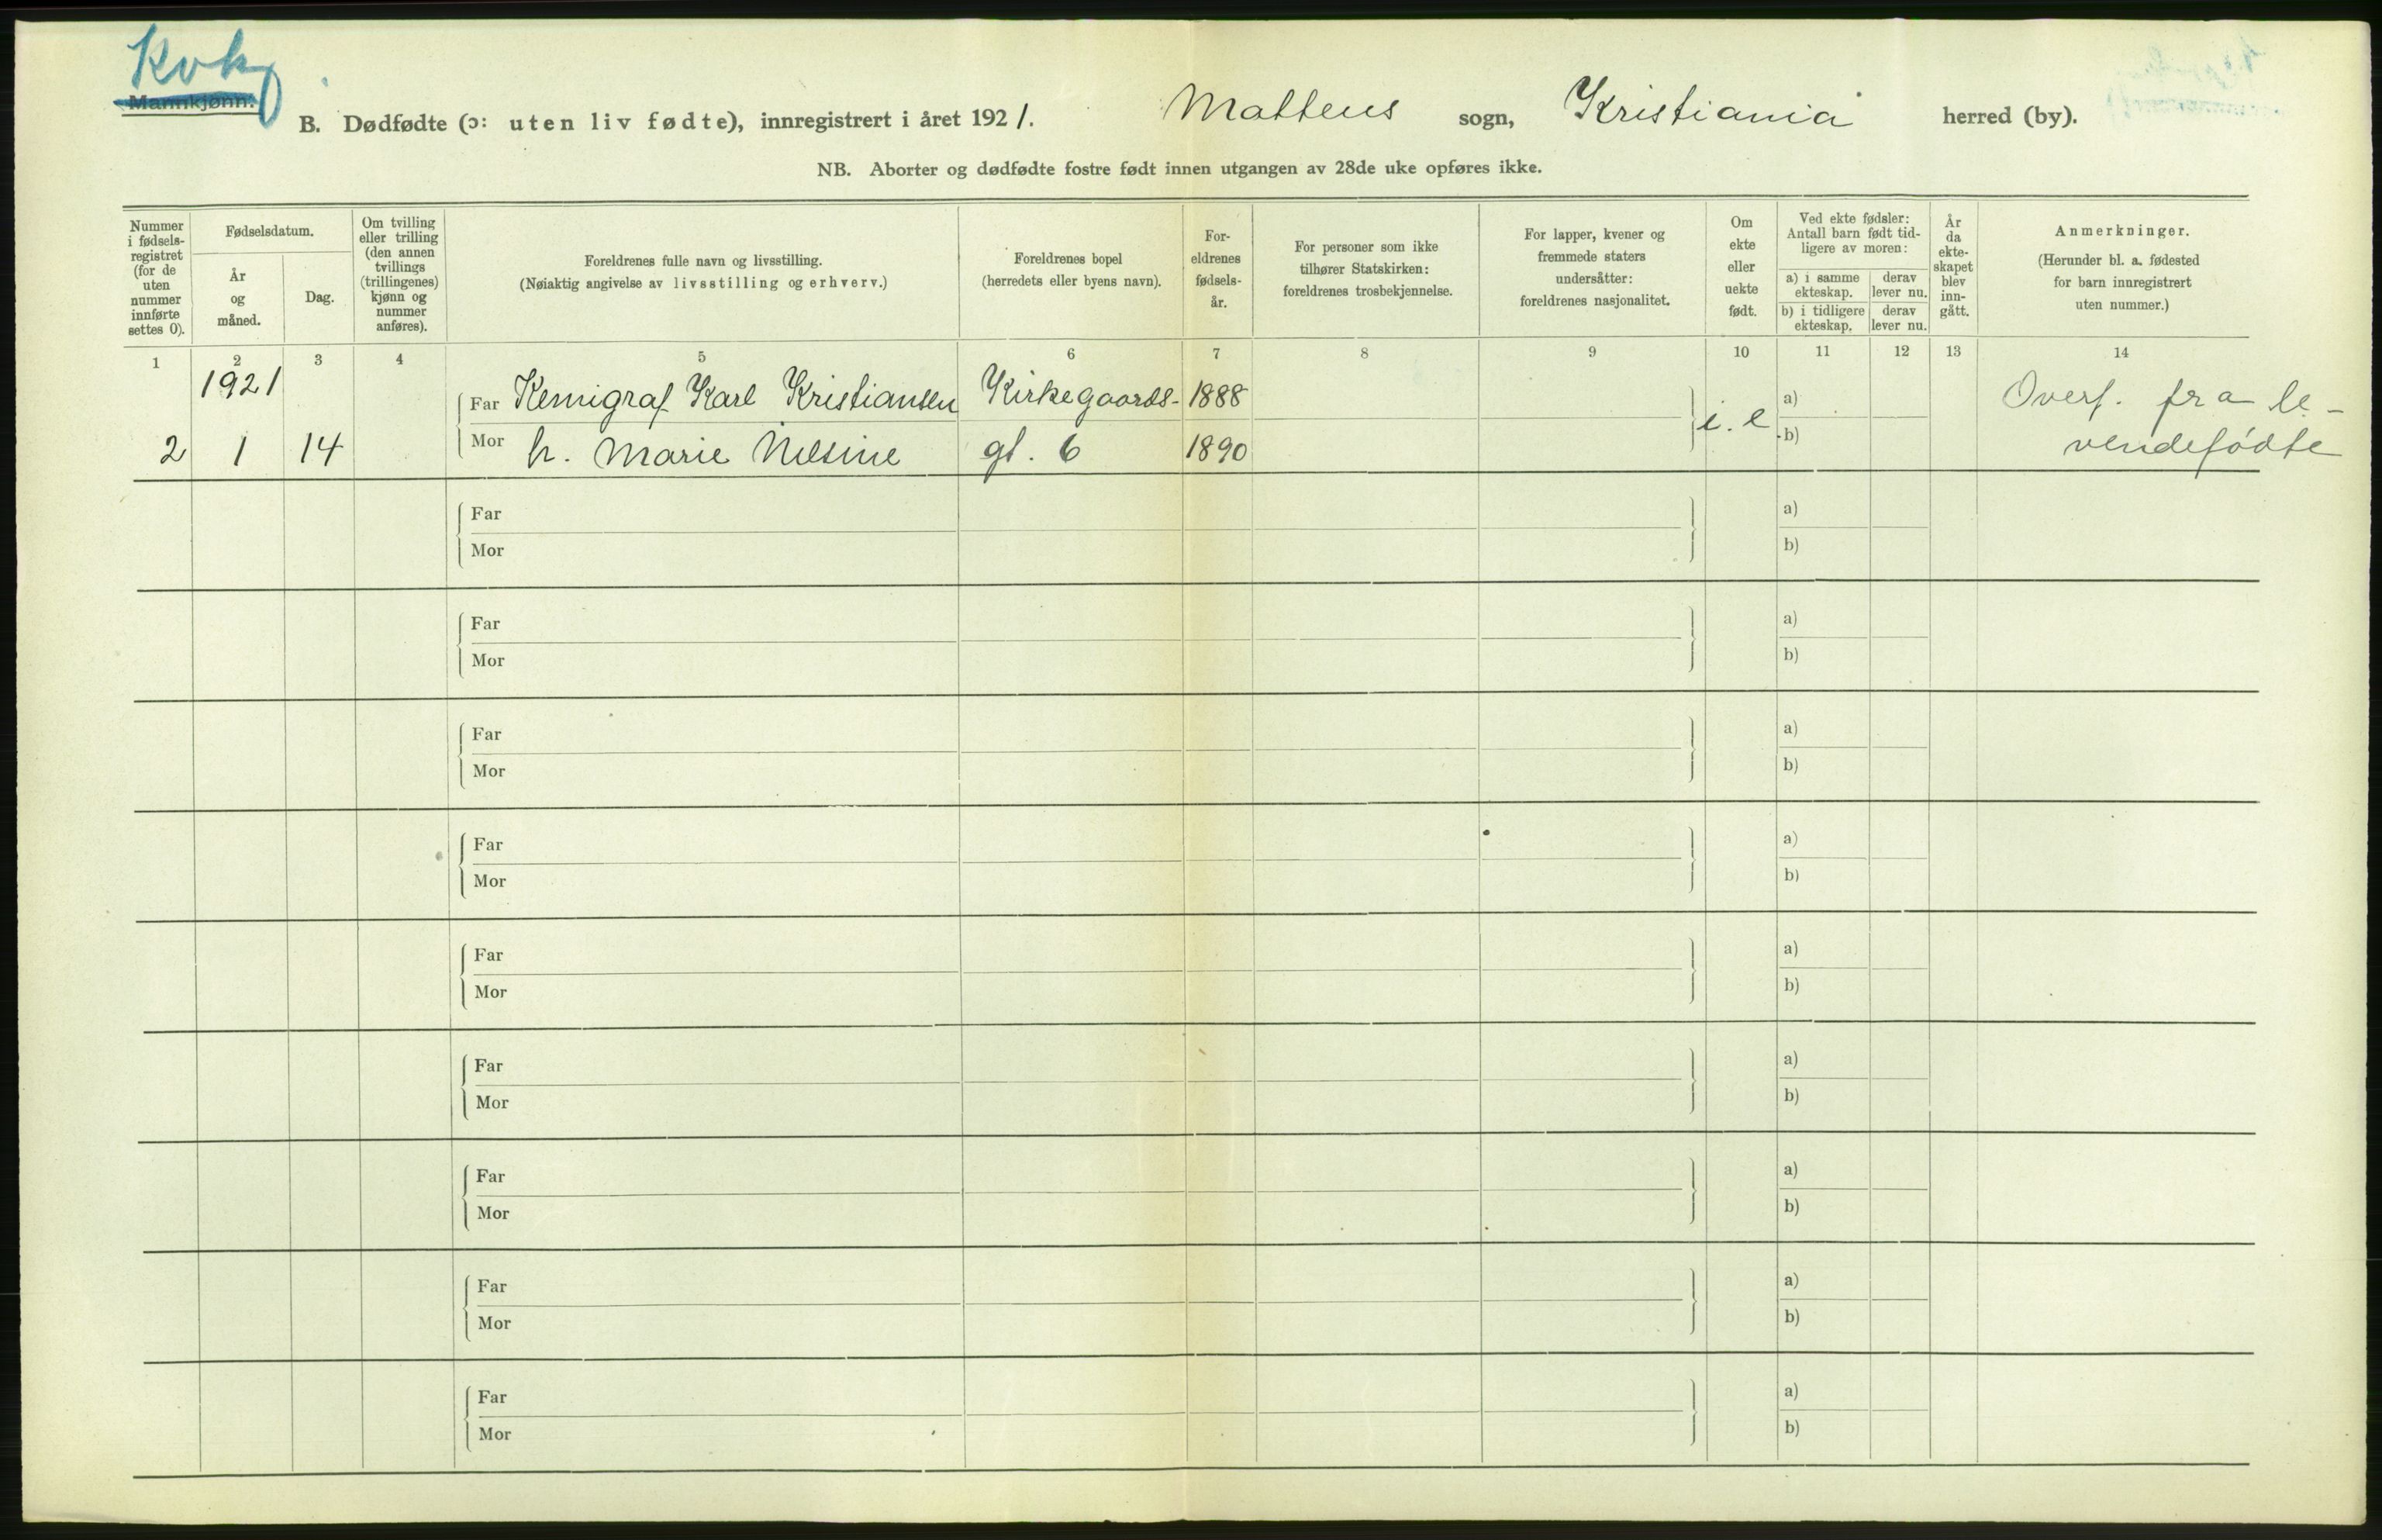 Kvk
Mannkjønn.
B. Dødfødte (ɔ: uten liv fødte), innregistrert i året 1921. Matteus sogn, Kristiania herred (by).
NB. Aborter og dødfødte fostre født innen utgangen av 28de uke opføres ikke.
Nummer i fødsels- registret (for de uten nummer innførte settes 0).
Fødselsdatum.
År og måned.
Dag.
Om tvilling eller trilling (den annen tvillings (trillingenes) kjønn og nummer anføres).
Foreldrenes fulle navn og livsstilling.
(Nøiaktig angivelse av livsstilling og erhverv.)
Foreldrenes bopel
(herredets eller byens navn).
For- eldrenes fødsels- år.
For personer som ikke tilhører Statskirken: foreldrenes trosbekjennelse.
For lapper, kvener og fremmede staters undersåtter: foreldrenes nasjonalitet.
Om ekte eller uekte født.
Ved ekte fødsler: Antall barn født tid- ligere av moren:
a) i samme ekteskap. derav lever nu.
b) i tidligere ekteskap. derav lever nu.
År da ekte- skapet blev inn- gått.
Anmerkninger.
(Herunder bl. a. fødested for barn innregistrert uten nummer.)
1 2 3 4 5 6 7 8 9 10 11 12 13 14
1921 Far Kemigraf Karl Kristiansen Kirkegaards- 1888 i. e a) Overf. fra le-
2 1 14 Mor h. Marie Nilsine gt. 6 1890 b) vendefødte
Far a)
Mor b)
Far a)
Mor b)
Far a)
Mor b)
Far a)
Mor b)
Far a)
Mor b)
Far a)
Mor b)
Far a)
Mor b)
Far a)
Mor b)
Far a)
Mor b)